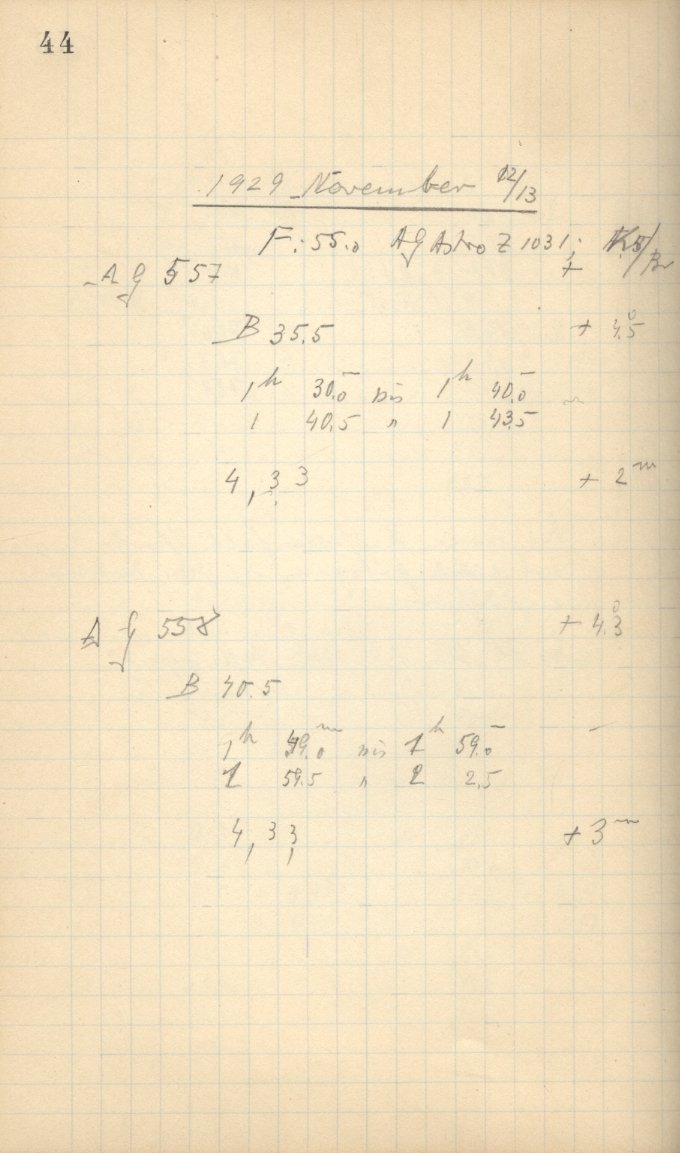 44
1929 November 12/13
F: 55.0 AG Astro Z 1031;
AG 557 +
B 35.5 + 4.5°
1h 30.0m bis 1h 40.0m
1 40.5 " 1 43.5
4, 3 3 + 2m
AG 558 + 4.3°
B 40.5
1h 49.0m bis 1h 59.0m
1 59.5 " 2 2.5
4, 3 3, + 3m